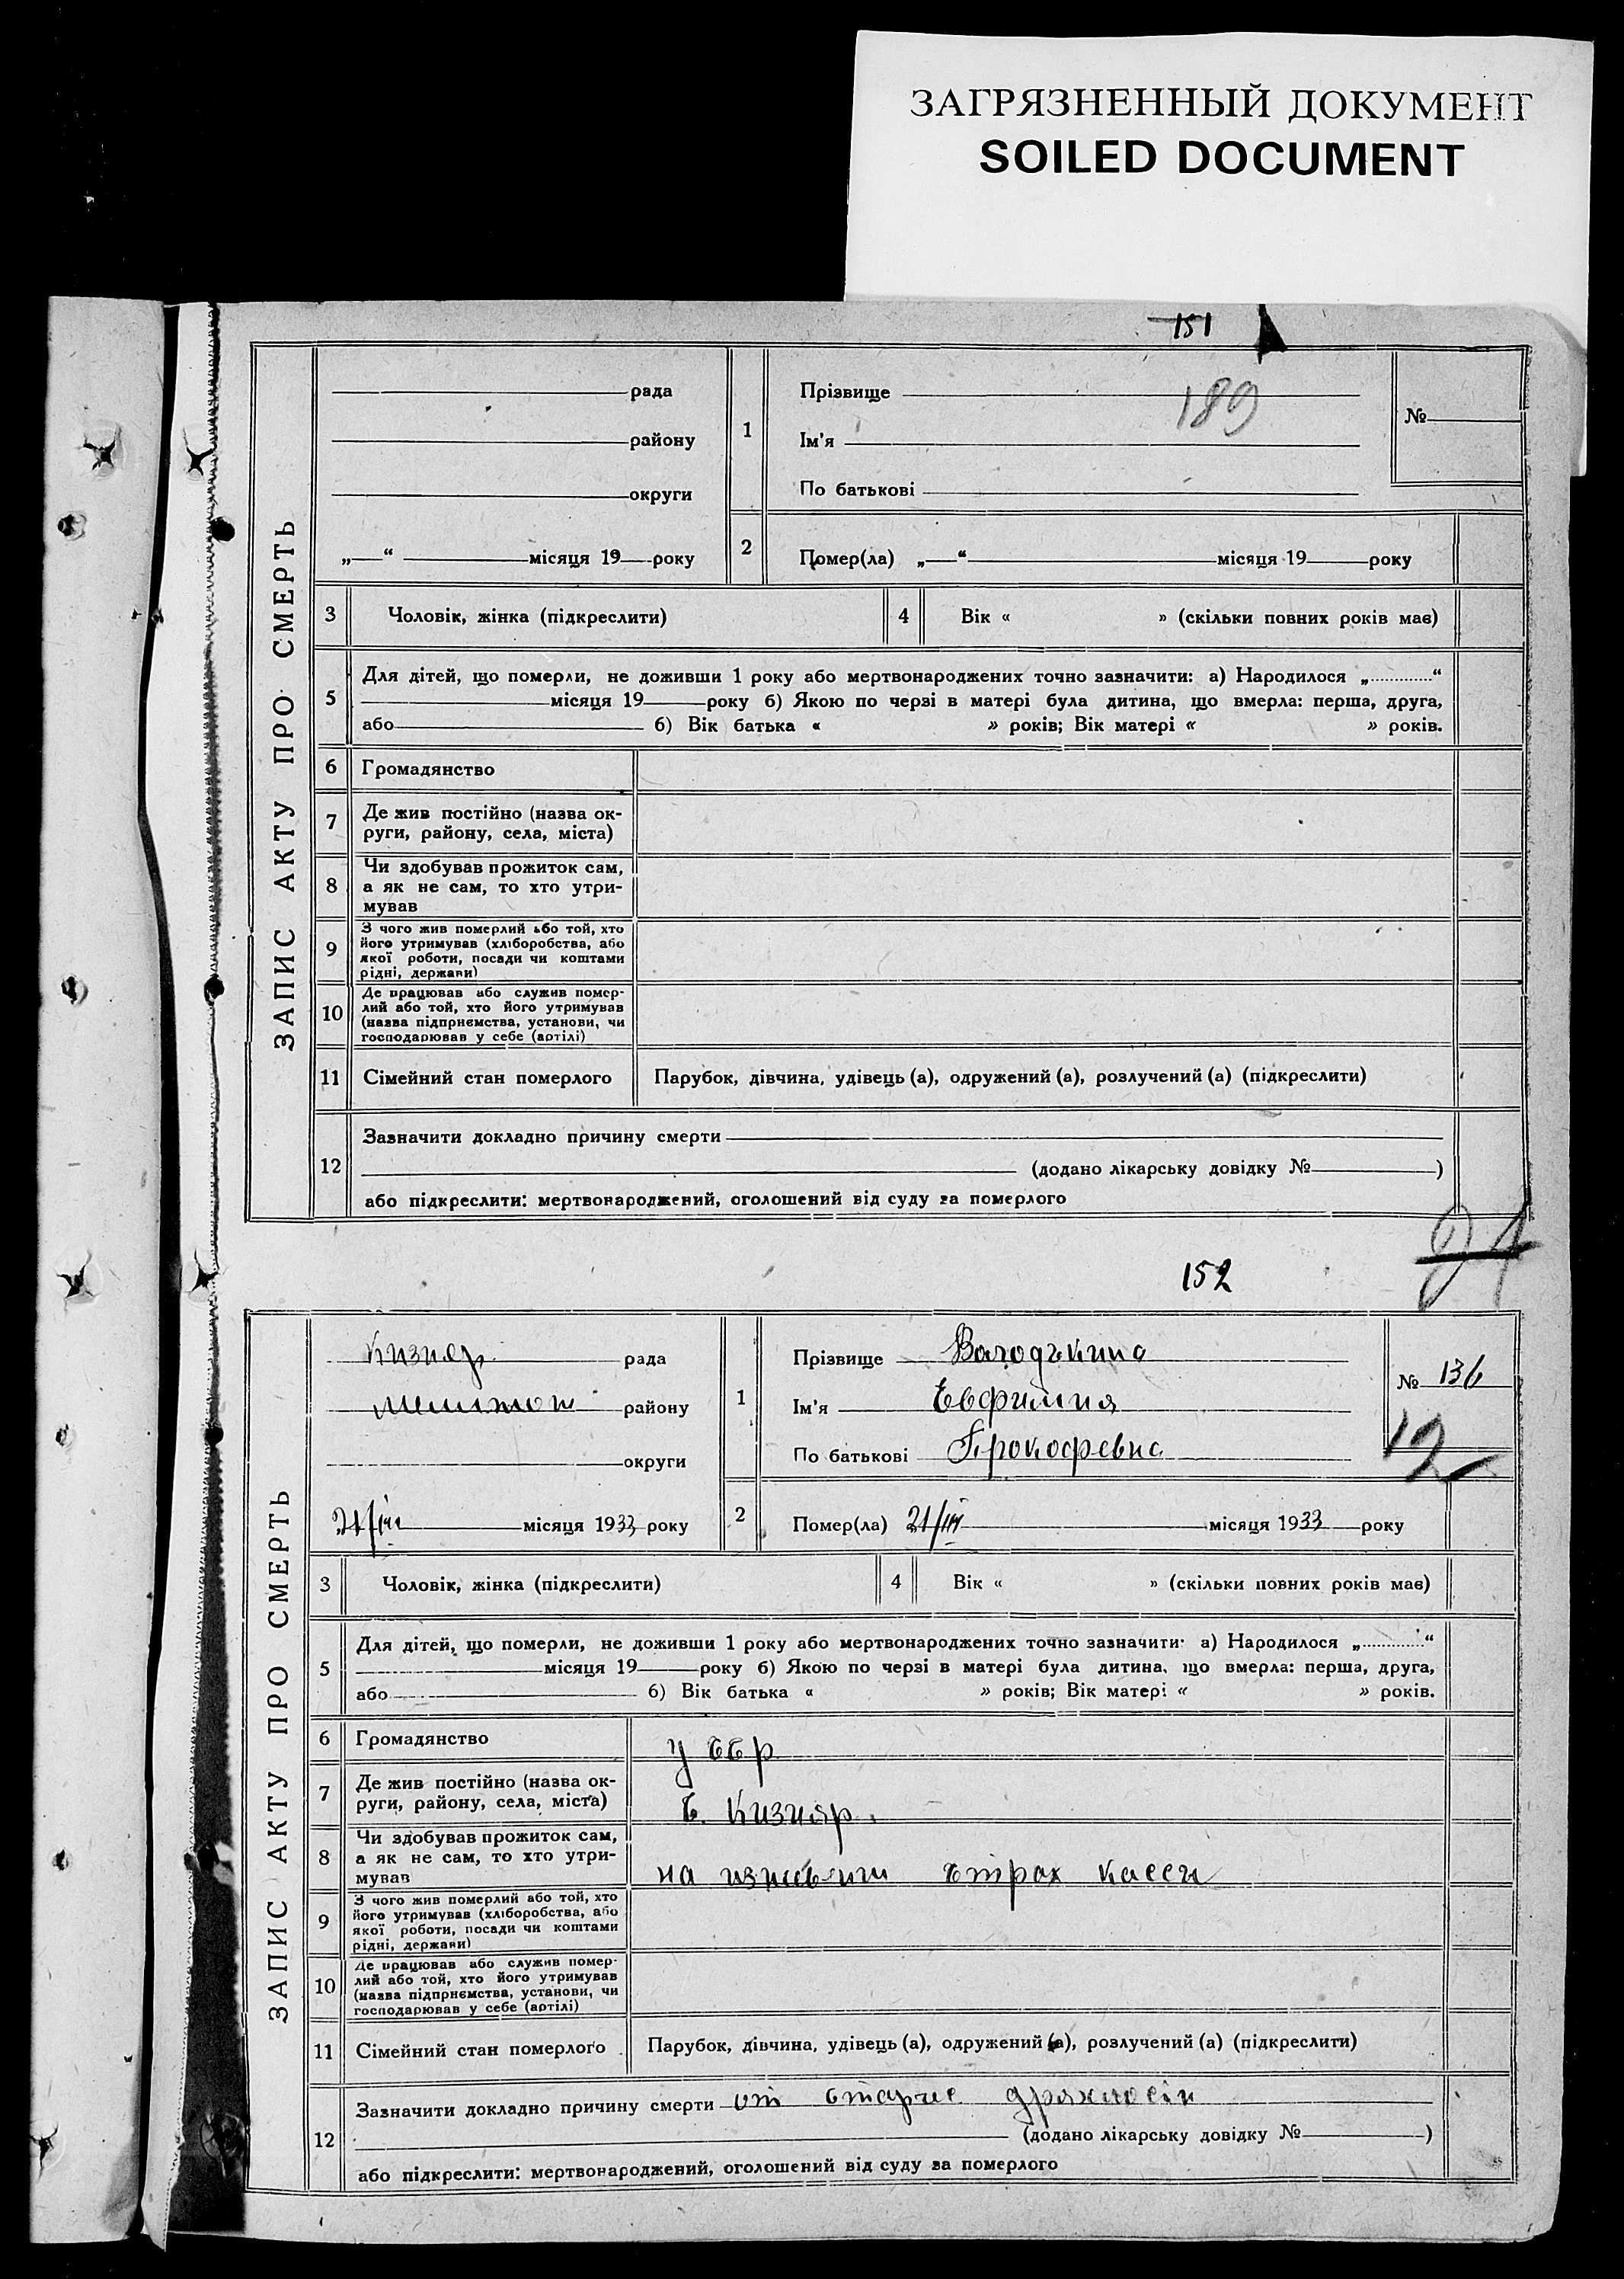 ЗАГРЯЗНЕННЫЙ ДОКУМЕНТ
SOILED DOCUMENT
151
ЗАПИС АКТУ ПРО СМЕРТЬ
рада
району
округи
„ “ місяця 19 року
1
Прізвище
189
Ім'я
По батькові
№
2
Помер(ла) „ “ місяця 19 року
3 Чоловік, жінка (підкреслити)
4 Вік « » (скільки повних років має)
5
Для дітей, що померли, не доживши 1 року або мертвонароджених точно зазначити: а) Народилося „ “
місяця 19 року б) Якою по черзі в матері була дитина, що вмерла: перша, друга,
або б) Вік батька « » років; Вік матері « » років.
6 Громадянство
7
Де жив постійно (назва ок-
руги, району, села, міста)
8
Чи здобував прожиток сам,
а як не сам, то хто утри-
мував
9
З чого жив померлий або той, хто
його утримував (хліборобства, або
якої роботи, посади чи коштами
рідні, держави)
10
Де працював або служив помер-
лий або той, хто його утримував
(назва підприємства, установи, чи
господарював у себе (артілі)
11 Сімейний стан померлого
Парубок, дівчина, удівець (а), одружений (а), розлучений (а) (підкреслити)
12
Зазначити докладно причину смерти
(додано лікарську довідку № )
або підкреслити: мертвонароджений, оголошений від суду за померлого
152
ЗАПИС АКТУ ПРО СМЕРТЬ
Кизияр рада
району
округи
21/III місяця 1933 року
1
Прізвище Володькина
Ім'я Евфимия
По батькові Прокофевна
№ 136
12
2
Помер(ла) 21/III місяця 1933 року
3 Чоловік, жінка (підкреслити)
4 Вік « » (скільки повних років має)
5
Для дітей, що померли, не доживши 1 року або мертвонароджених точно зазначити: а) Народилося „ “
місяця 19 року б) Якою по черзі в матері була дитина, що вмерла: перша, друга,
або б) Вік батька « » років; Вік матері « » років.
6 Громадянство
УССР
7
Де жив постійно (назва ок-
руги, району, села, міста)
С. Кизияр.
8
Чи здобував прожиток сам,
а як не сам, то хто утри-
мував
на страх кассы
9
З чого жив померлий або той, хто
його утримував (хліборобства, або
якої роботи, посади чи коштами
рідні, держави)
10
Де працював або служив помер-
лий або той, хто його утримував
(назва підприємства, установи, чи
господарював у себе (артілі)
11 Сімейний стан померлого
Парубок, дівчина, удівець (а), одружений (а), розлучений (а) (підкреслити)
12
Зазначити докладно причину смерти от старче дряхлости
(додано лікарську довідку № )
або підкреслити: мертвонароджений, оголошений від суду за померлого